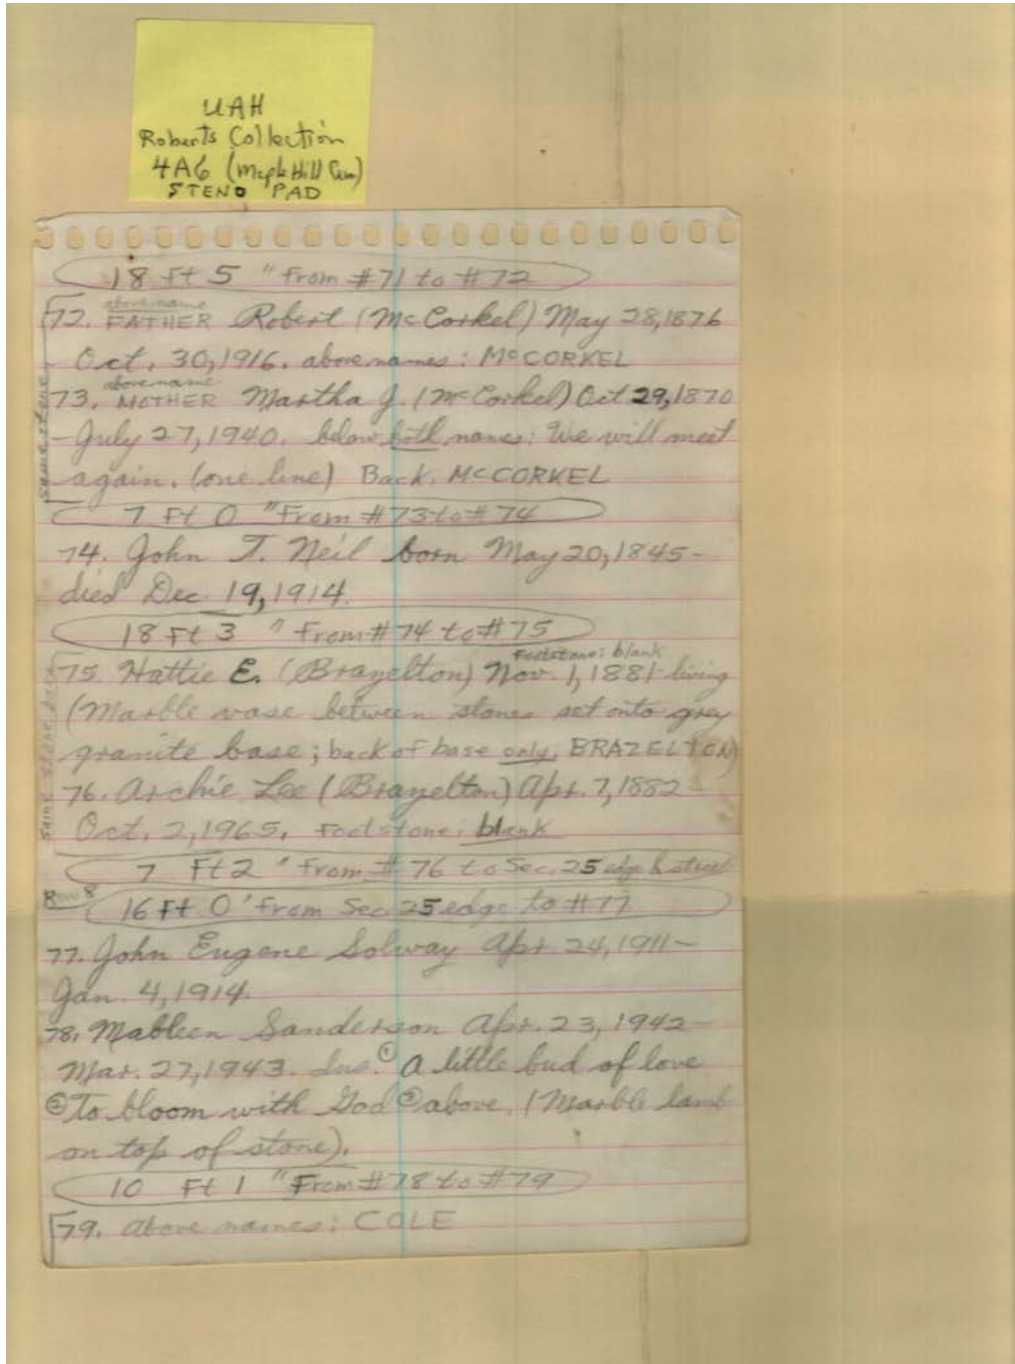 UAH
Roberts Collection
4A6 (Maple Hill Cem)
STENO PAD
18 Ft 5 " From #71 to #72
above name
72. FATHER Robert (McCorkel) May 28, 1876
- Oct. 30, 1916. above names: McCORKEL
above name
73. MOTHER Martha J. (McCorkel) Oct 29, 1870
- July 27, 1940. below both names: We will meet
again. (one line) Back: McCORKEL
same stone
7 Ft 0 " From #73 to #74
74. John T. Neil born May 20, 1845 -
died Dec 19, 1914.
18 Ft 3 " From #74 to #75
Footstone: blank
75. Hattie E. (Brazelton) Nov. 1, 1881 - living
(Marble vase between stones set onto grey
granite base; back of base only, BRAZELTON)
76. Archie Lee (Brazelton) Apr. 7, 1882
Oct. 2, 1965. Footstone: blank
same stone
7 Ft 2 " From #76 to Sec. 25 edge & street
Row 8
16 Ft 0 " From Sec 25 edge to #77
77. John Eugene Solway Apr 24, 1911 -
Jan. 4, 1914.
78. Mableen Sanderson Apr. 23, 1942 -
Mar. 27, 1943. Ins. ① A little bud of love
② To bloom with God ③ above. (Marble lamb
on top of stone).
10 Ft 1 " From #78 to #79
79. Above names: COLE